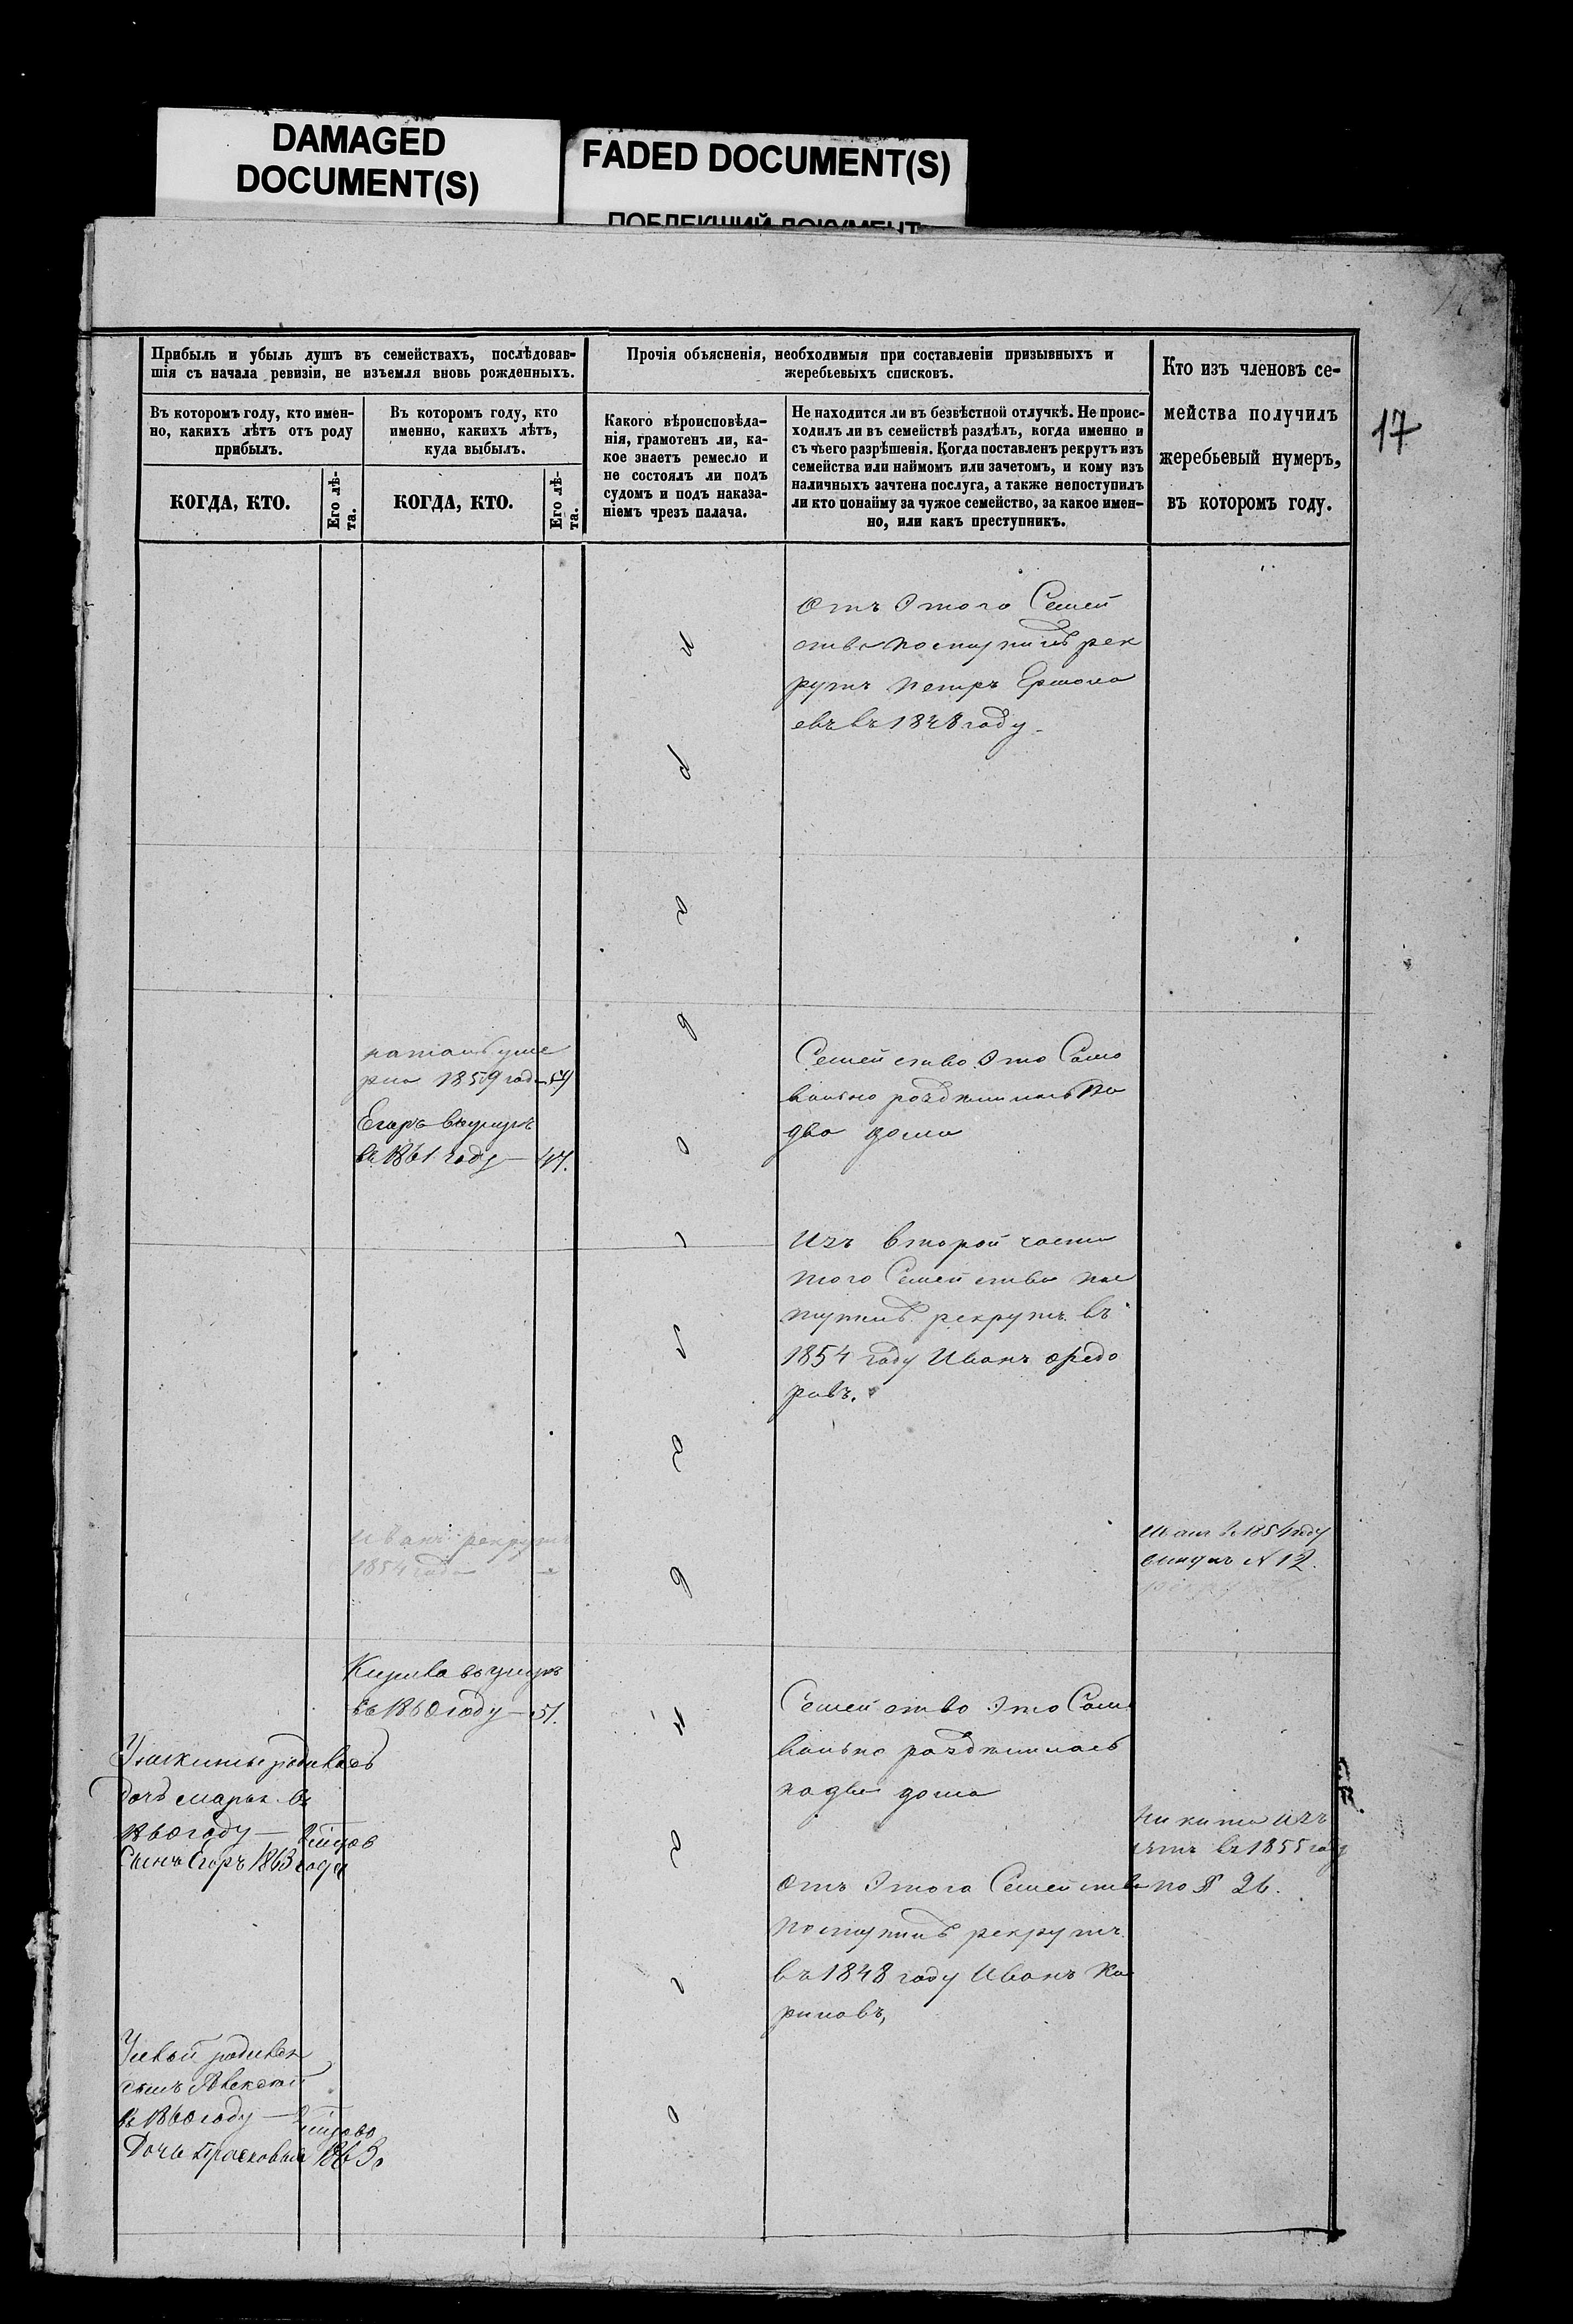 DAMAGED
DOCUMENT(S)
FADED DOCUMENT(S)
ПОБЛЕКШИЙ ДОКУМЕНТ
17
Прибыль и убыль душъ въ семействахъ, послѣдовав-
шія съ начала ревизіи, не изъемля вновь рожденныхъ.
Въ которомъ году, кто имен-
но, какихъ лѣтъ отъ роду
прибылъ.
КОГДА, КТО.
Его лѣ-
та.
Въ которомъ году, кто
именно, какихъ лѣтъ,
куда выбылъ.
КОГДА, КТО.
Его лѣ-
та.
Прочія объясненія, необходимыя при составленіи призывныхъ и
жеребьевыхъ списковъ.
Какого вѣроисповѣда-
нія, грамотенъ ли, ка-
кое знаетъ ремесло и
не состоялъ ли подъ
судомъ и подъ наказа-
ніемъ чрезъ палача.
Не находится ли въ безвѣстной отлучкѣ. Не проис-
ходилъ ли въ семействѣ раздѣлъ, когда именно и
съ чьего разрѣшенія. Когда поставленъ рекрутъ изъ
семейства или наймомъ или зачетомъ, и кому изъ
наличныхъ зачтена послуга, а также непоступилъ
ли кто понайму за чужое семейство, за какое имен-
но, или какъ преступникъ.
Кто изъ членовъ се-
мейства получилъ
жеребьевый нумеръ,
въ которомъ году.
Отъ Этого Семей
ства поступилъ рек
рутъ петръ Ермола
евъ въ 1848 году
уме
1859 года
Егоръ
въ 1861 году — 47.
Семейство Это Само
вольно раздѣлилось на
два дома
Изъ второй части
того Семейства пос
тупилъ рекрутъ въ
1854 году Иванъ Федо
ровъ.
Иванъ рекрутъ
1854 года
Иванъ въ 1854 году
№ 12.
въ 1860 году — 51.
Семейство Это Сам
вольно раздѣлилось
на два дома
дочь марья въ
1860 году —
Сынъ Егоръ 1863 года
Никита изъ
въ 1855 году
по № 26.
Отъ Этого Семейства
поступилъ рекрутъ
въ 1848 году Иванъ Ки
риловъ,
сынъ Алексей
въ 1860 году —
Дочь Прасковья 1863